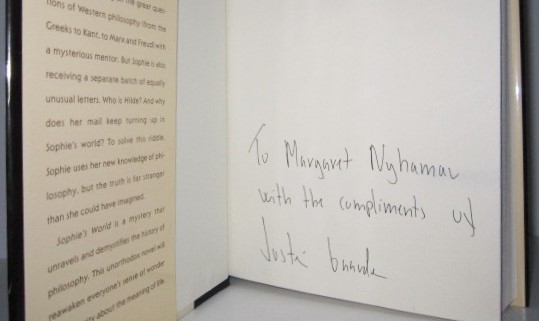 the great ques-
tions of Western philosophy (from the
Greeks to Kant, to Marx and Freud) with
a mysterious mentor. But Sophie is also
receiving a separate batch of equally
unusual letters. Who is Hilde? And why
does her mail keep turning up in
Sophie's world? To solve this riddle,
Sophie uses her new knowledge of phi-
losophy, but the truth is far stranger
than she could have imagined.
Sophie's World is a mystery that
unravels and demystifies the history of
philosophy. This unorthodox novel will
reawaken everyone's sense of wonder
about the meaning of life.
To Margaret Nyhamar
with the compliments of
Jostein Gaarder